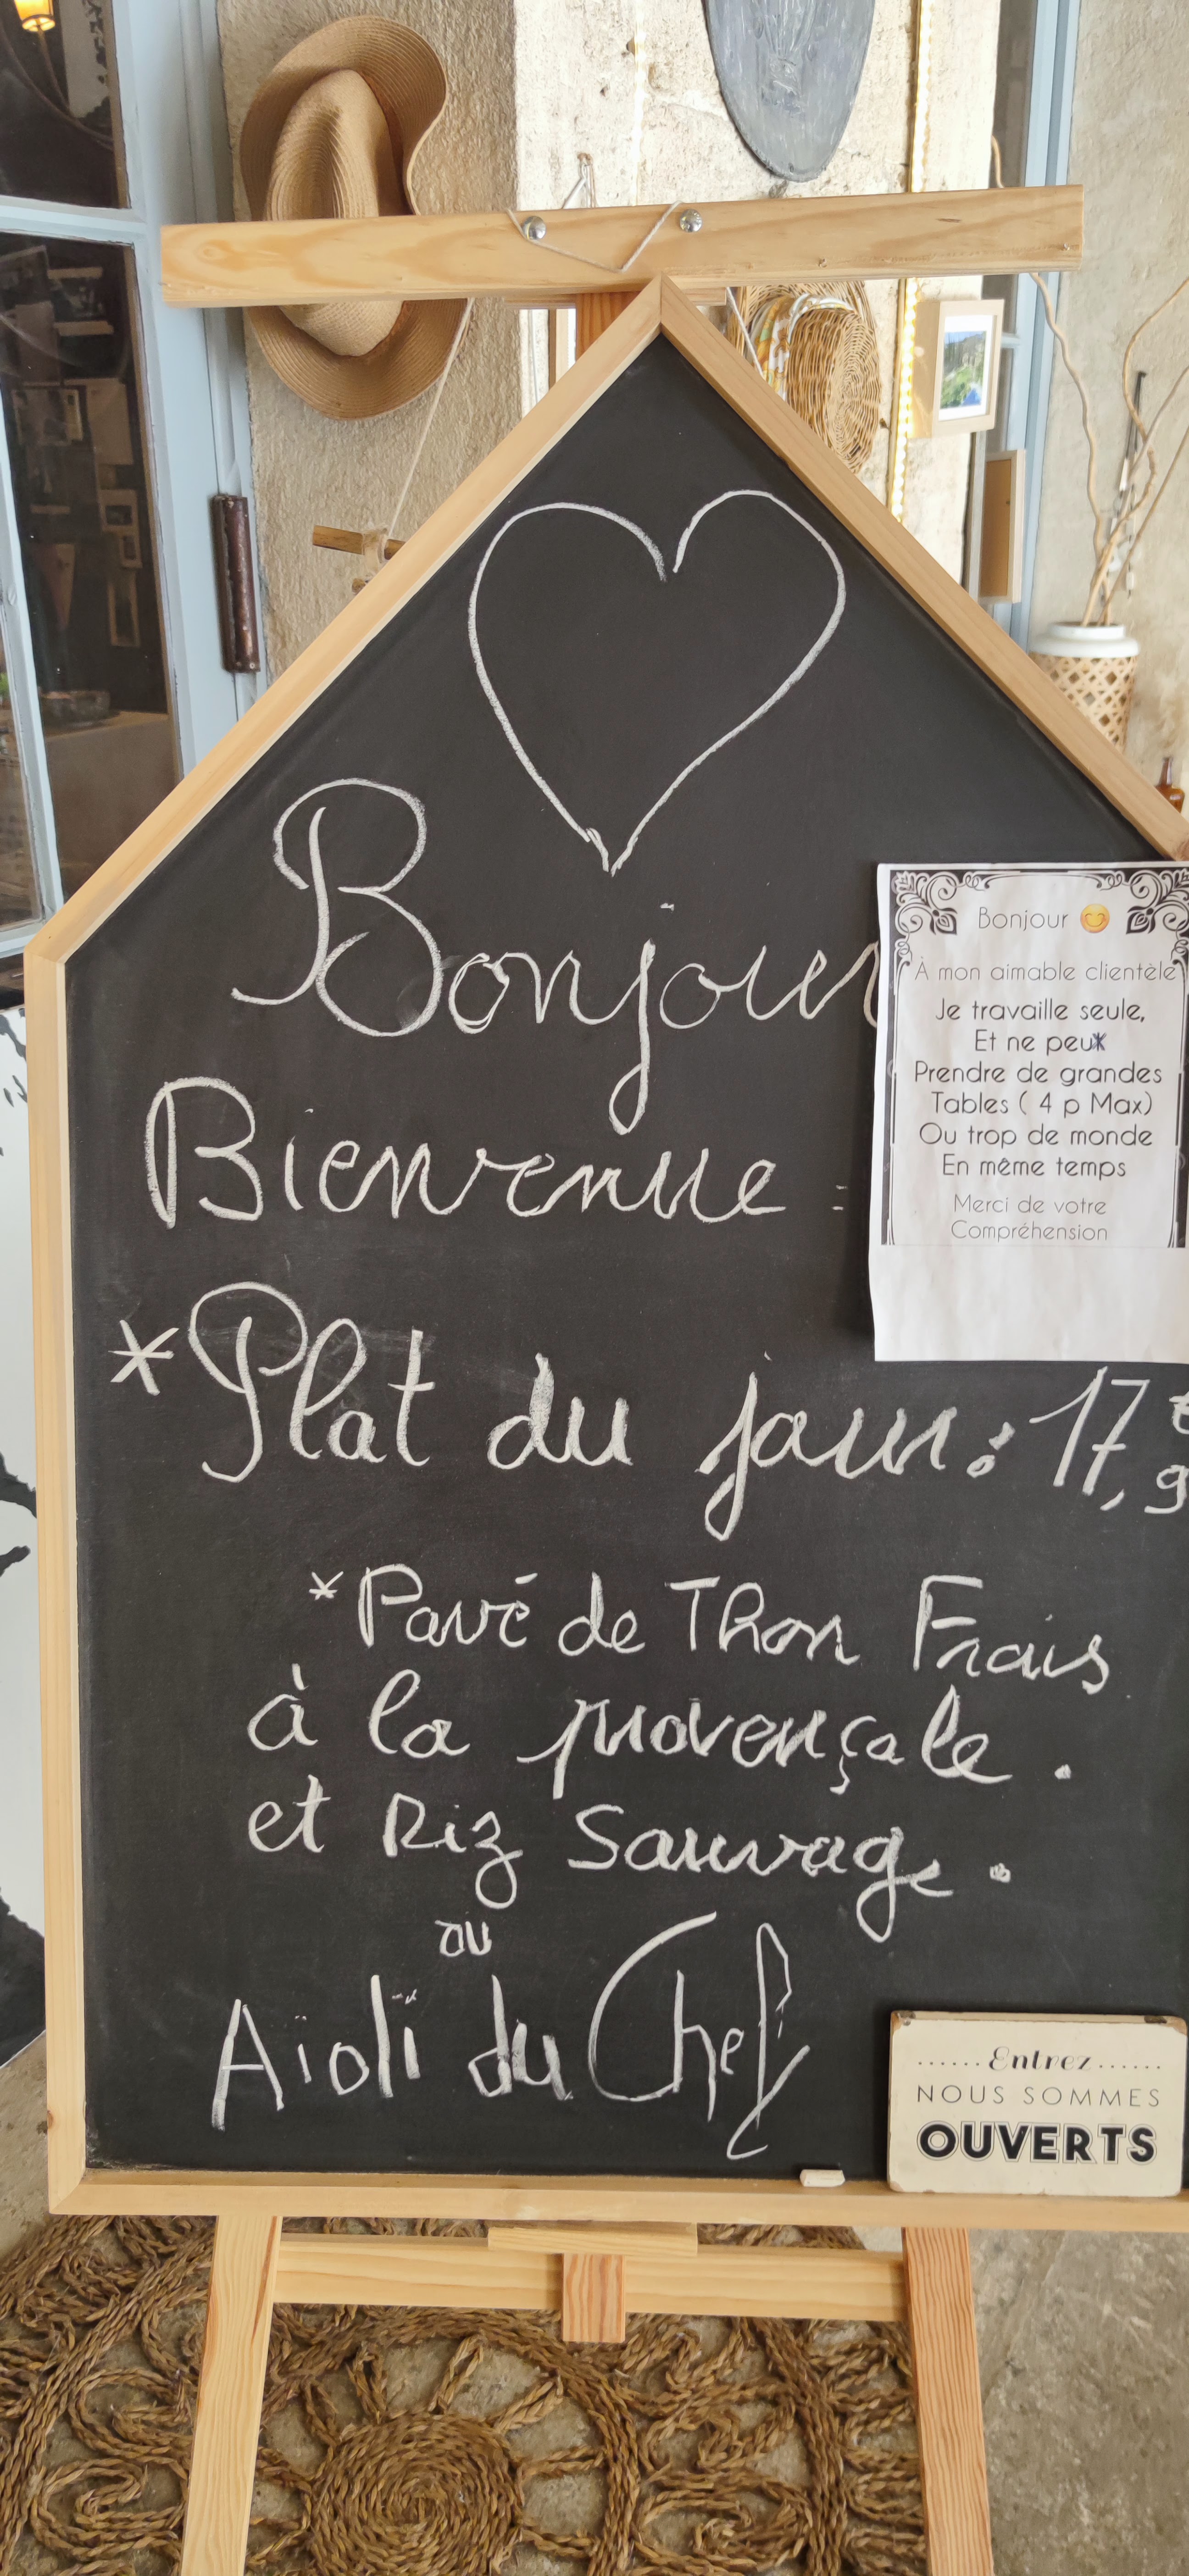 Bonjour
Bienvenue =
Bonjour 😊
À mon aimable clientèle
Je travaille seule,
Et ne peux
Prendre de grandes
Tables ( 4 p Max)
Ou trop de monde
En même temps
Merci de votre
Compréhension
*Plat du jour : 17,9 €
*Pavé de Thon Frais
à la provençale .
et Riz Sauvage .
ou
Aïoli du Chef
......Entrez......
NOUS SOMMES
OUVERTS